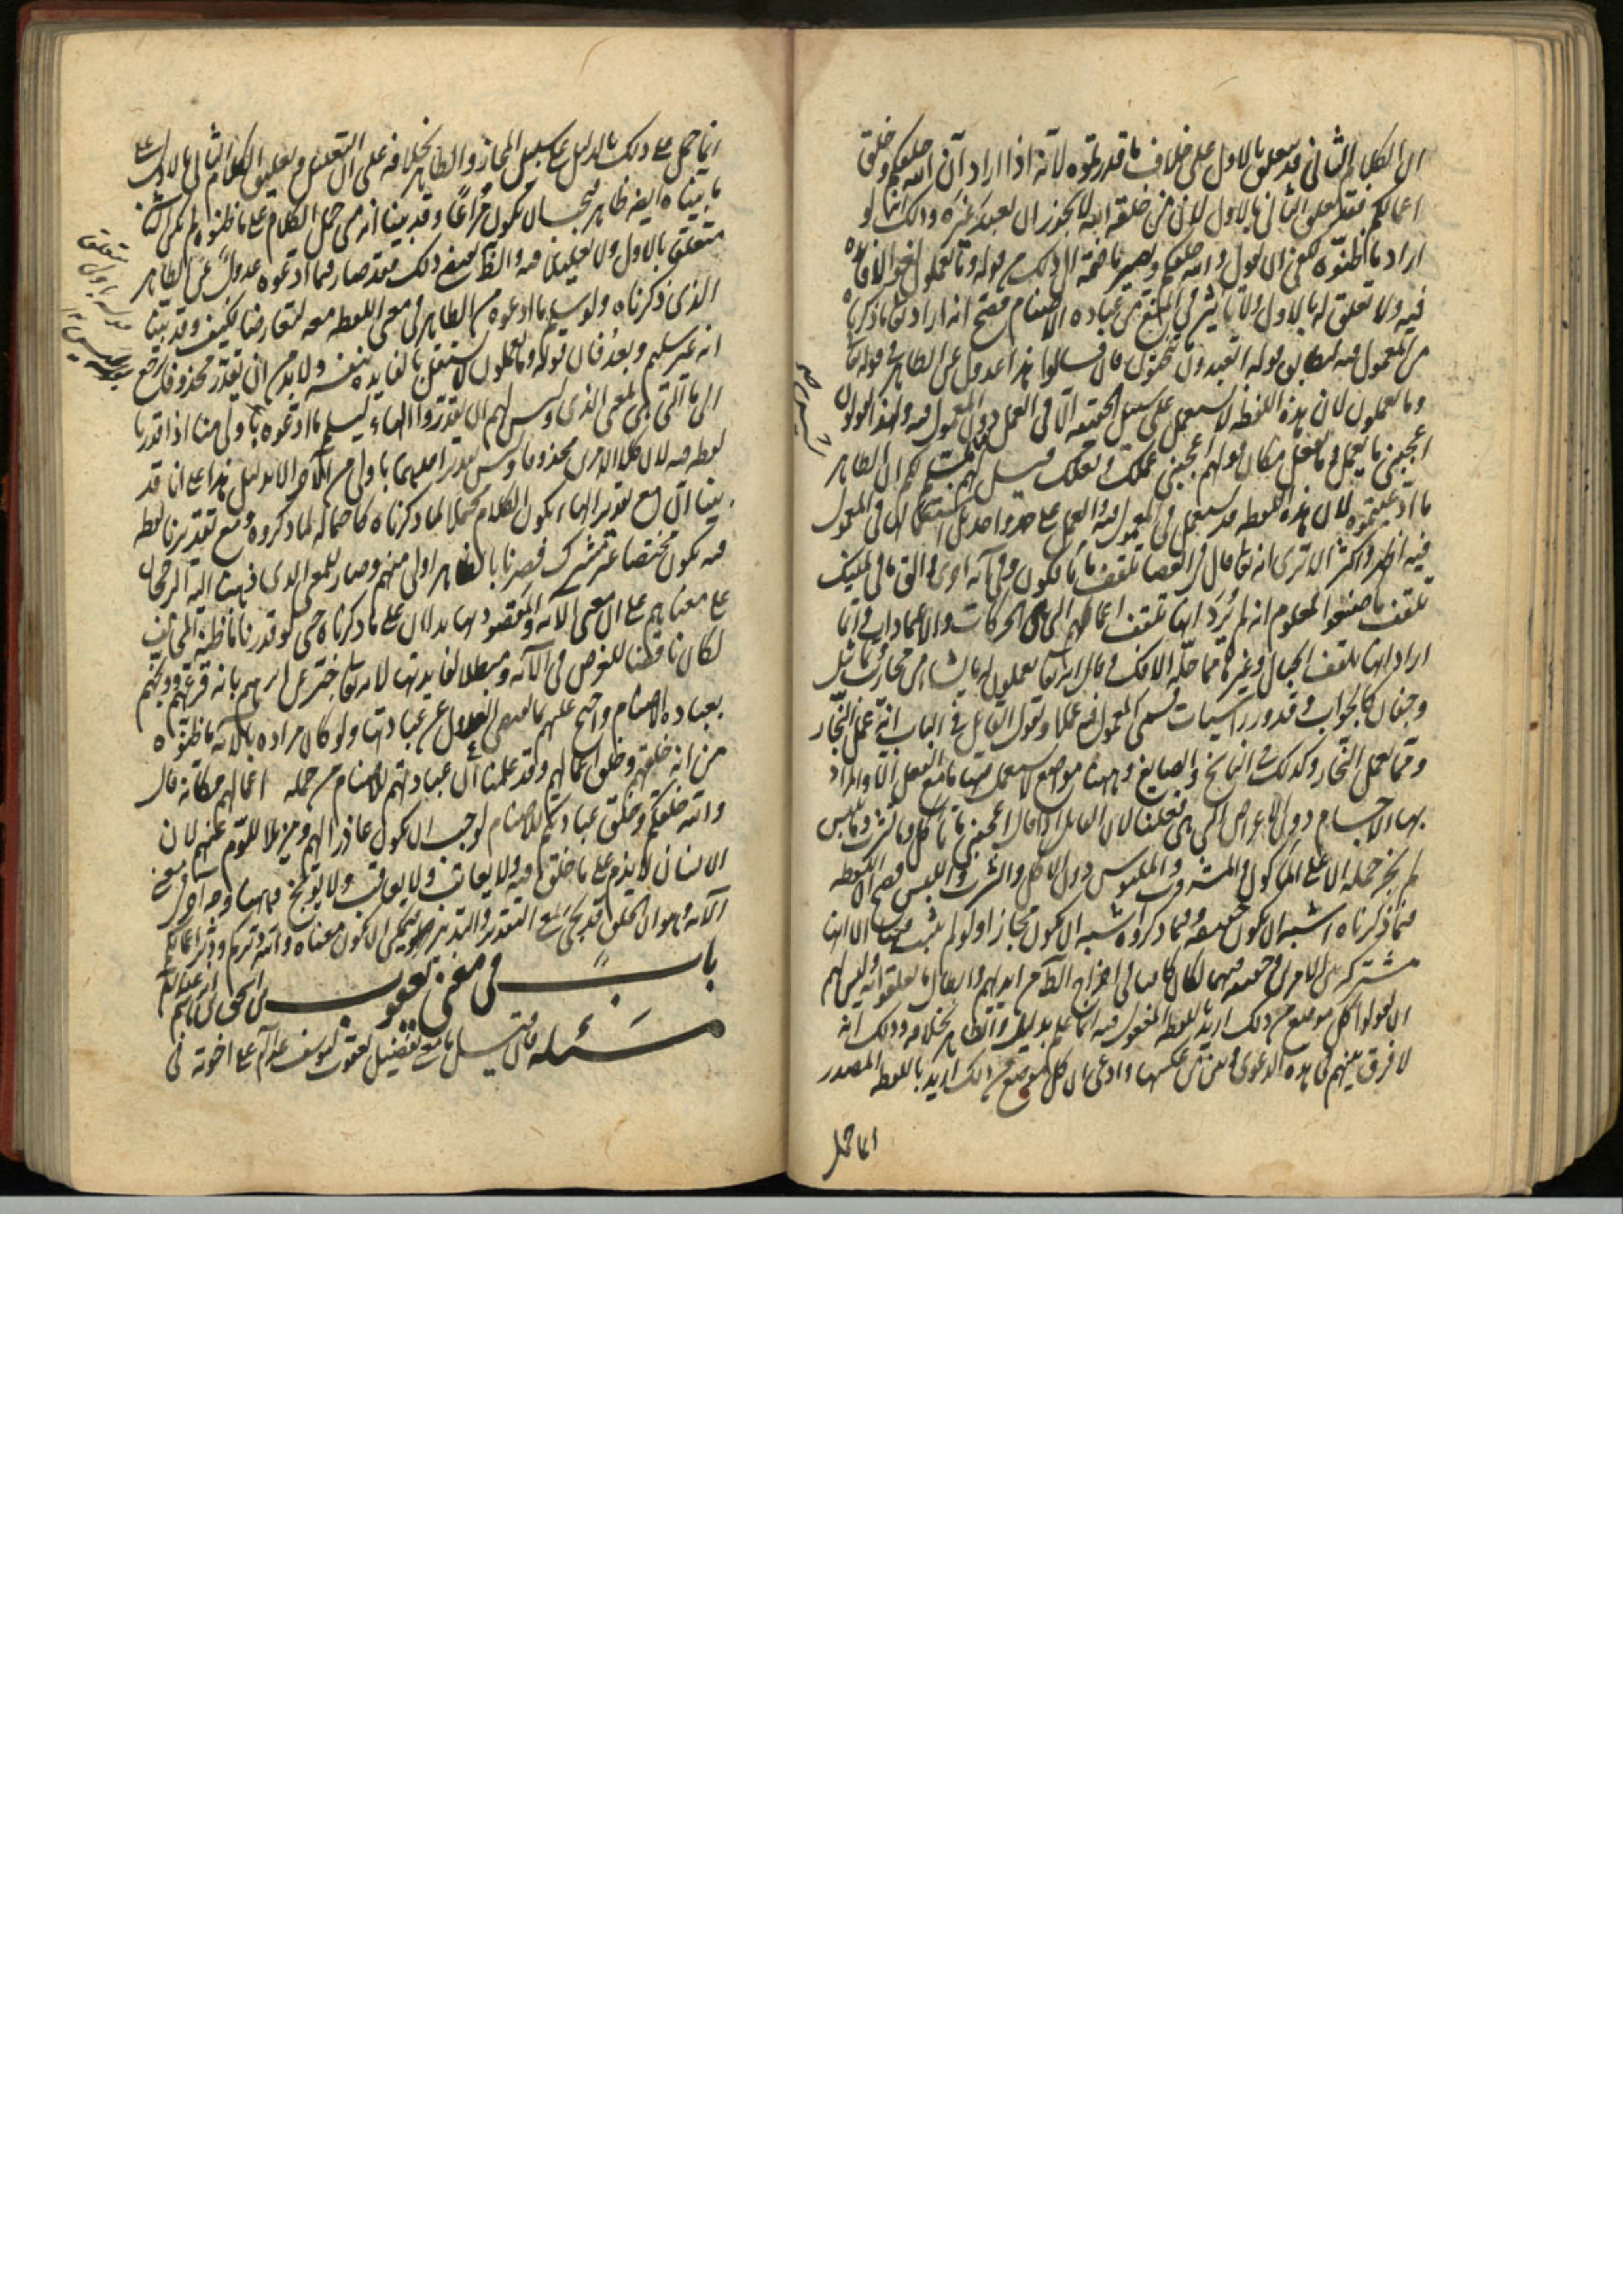 ان الكلام الثانى قد يتعلق بالاول على خلاف ما قدرتموه لانه اذا اراد ان الله خلقكم وخلق
اعمالكم فقد تعلق الثانى بالاول لان من خلقه الله لا يجوز ان يعبد غيره وذلك انه لو
اراد ما ظنوه لكفى ان يقول والله خلقكم ويصير ما ضمه الى ذلك من قوله وما تعملون لغوا لا فائدة
فيه ولا تعلق له بالاول ولا تأثير فى المنع من عباده الاصنام فصح انه اراد تعالى ما ذكرناه
من المعمول فيه ليطابق قوله اتعبدون ما تنحتون فان قالوا هذا عدول عن الظاهر فى قوله تعالى
وما تعملون لان هذه اللفظه لا تستعمل على سبيل الحقيقه الا فى العمل دون المعمول فيه ولهذا يقولون
اعجبنى ما تعمل وما تفعل مكان قولهم اعجبنى عملك وفعلك قيل لهم ليس نسلم لكم ان الظاهر
ما ادعيتموه لان هذه اللفظه قد تستعمل فى المعمول فيه والعمل على حد واحد بل استعمالها فى المعمول
فيه اظهر واكثر الا ترى انه تعالى قال فى العصا تلقف ما يأفكون وفى آيه اخرى والق ما فى يمينك
تلقف ما صنعوا ومعلوم انه لم يرد انها تلقف اعمالهم التى هى الحركات والاعتمادات وانما
اراد انها تلقف الحبال وغيرها مما حله الافك وقال الله تعالى يعملون له ما يشاء من محاريب وتماثيل
وجفان كالجواب وقدور راسيات فسمى المعمول فيه عملا ويقول القائل فى الباب انه عمل النجار
ومما يعمل النجار وكذلك فى الناسخ والصايغ وههنا مواضع لا يستعمل فيها ما مع الفعل الا والمراد
بها الاجسام دون الاعراض التى هى فعلنا لان القائل اذا قال اعجبنى ما تأكل وما تشرب وما تلبس
لم يجز حمله الا على المأكول والمشروب والملبوس دون الاكل والشرب واللبس فصح ان لفظه
ما فيما ذكرناه اشبه ان يكون حقيقه وفيما ذكروه اشبه ان يكون مجازا ولو لم يثبت فيها الا انها
مشتركه بين الامرين وحقيقه فيهما لكان كافيا فى اخراج الظاهر من ايديهم وابطال ما تعلقوا به وليس لهم
ان يقولوا كل موضع من ذلك اريد باللفظ المفعول فيه انما علم بدليل والظاهر بخلافه وذلك انه
لا فرق بينهم فى هذه الدعوى وبين من عكسها وادعى ان كل موضع من ذلك اريد باللفظه المصدر
انما حمل
انما حمل على ذلك بالدليل على سبيل المجاز والظاهر بخلافه على ان التعليل وتعليق الكلام الثانى بالاول على
ما بيناه ايضا ظاهر فيجب ان يكون مراعا وقد بينا انه متى حمل الكلام على ما ظنوه لم يكن الثانى
متعلق بالاول ولا تعليلا فيه والظاهر يقتضى ذلك فقد صار فيما ادعوه عدول عن الظاهر
الذى ذكرناه ولو سلم ما ادعوه من الظاهر فى معنى اللفظه معه لتعارضا فكيف وقد بينا
انه غير سليم وبعد فان قوله وما تعملون لا يستقل بالفايده بنفسه ولا بد من ان يقدر محذوف يرجع
الى ما التى بمعنى الذى وليس لهم ان يقدروا الهاء ليسلم ما ادعوه باولى منا اذا قدرنا
لفظه فيه لان كلا الامرين محذوف وليس تقدير احدهما باولى من الآخر الا بدليل هذا على انا قد
بينا ان مع تقدير الهاء يكون الكلام محتملا لما ذكرناه كاحتماله لما ذكروه ومع تقديرنا لفظه
فيه يكون مختصا غير مشترك فصرنا بالظاهر اولى منهم وصار للمعنى الذى ذهبنا اليه الرجحان
على معناهم على ان معنى الآيه والمقصود بها يدلان على ما ذكرناه حتى لو قدرنا ما ظنه المخالف
لكان ناقضا للغرض فى الآيه ومبطلا لفايدتها لانه تعالى اخبر عن ابرهيم بانه قرعهم ووبخهم
بعباده الاصنام واحتج عليهم بما يقتضى العدول عن عبادتها ولو كان مراده بالآيه ما ظنوه
من انه خلقهم وخلق اعمالهم وقد علمنا ان عبادتهم للاصنام من جمله اعمالهم فكأنه قال
والله خلقكم وخلق عبادتكم للاصنام لوجب ان يكون عاذرا لهم ومزيلا للوم عنهم لان
الانسان لا يذم على ما خلق فيه ولا يعاتب ولا يعاقب ولا يوبخ وههنا وجه آخر فى معنى
الآيه وهو ان الخلق قد يجىء بمعنى التقدير والتدبير فيمكن ان يكون معناه والله دبركم ودبر اعمالكم
بابٌ فى معنى يعقوب بن اسحق بن ابرهيم
مسئله فان قيل ما معنى تفضيل يعقوب ليوسف عليه السلام على اخوته فى